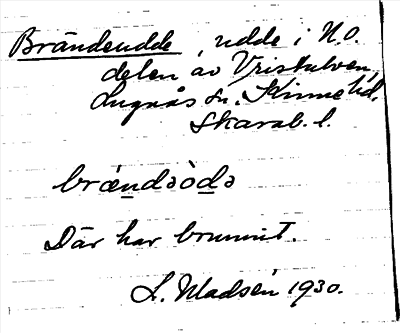 Brändeudde, udde i N.O.
delen av Vristulven,
Lugnås sn, Kinne hd,
Skarab. l.
brǽndəòdə
Där har brunnit.
L. Madsén 1930.